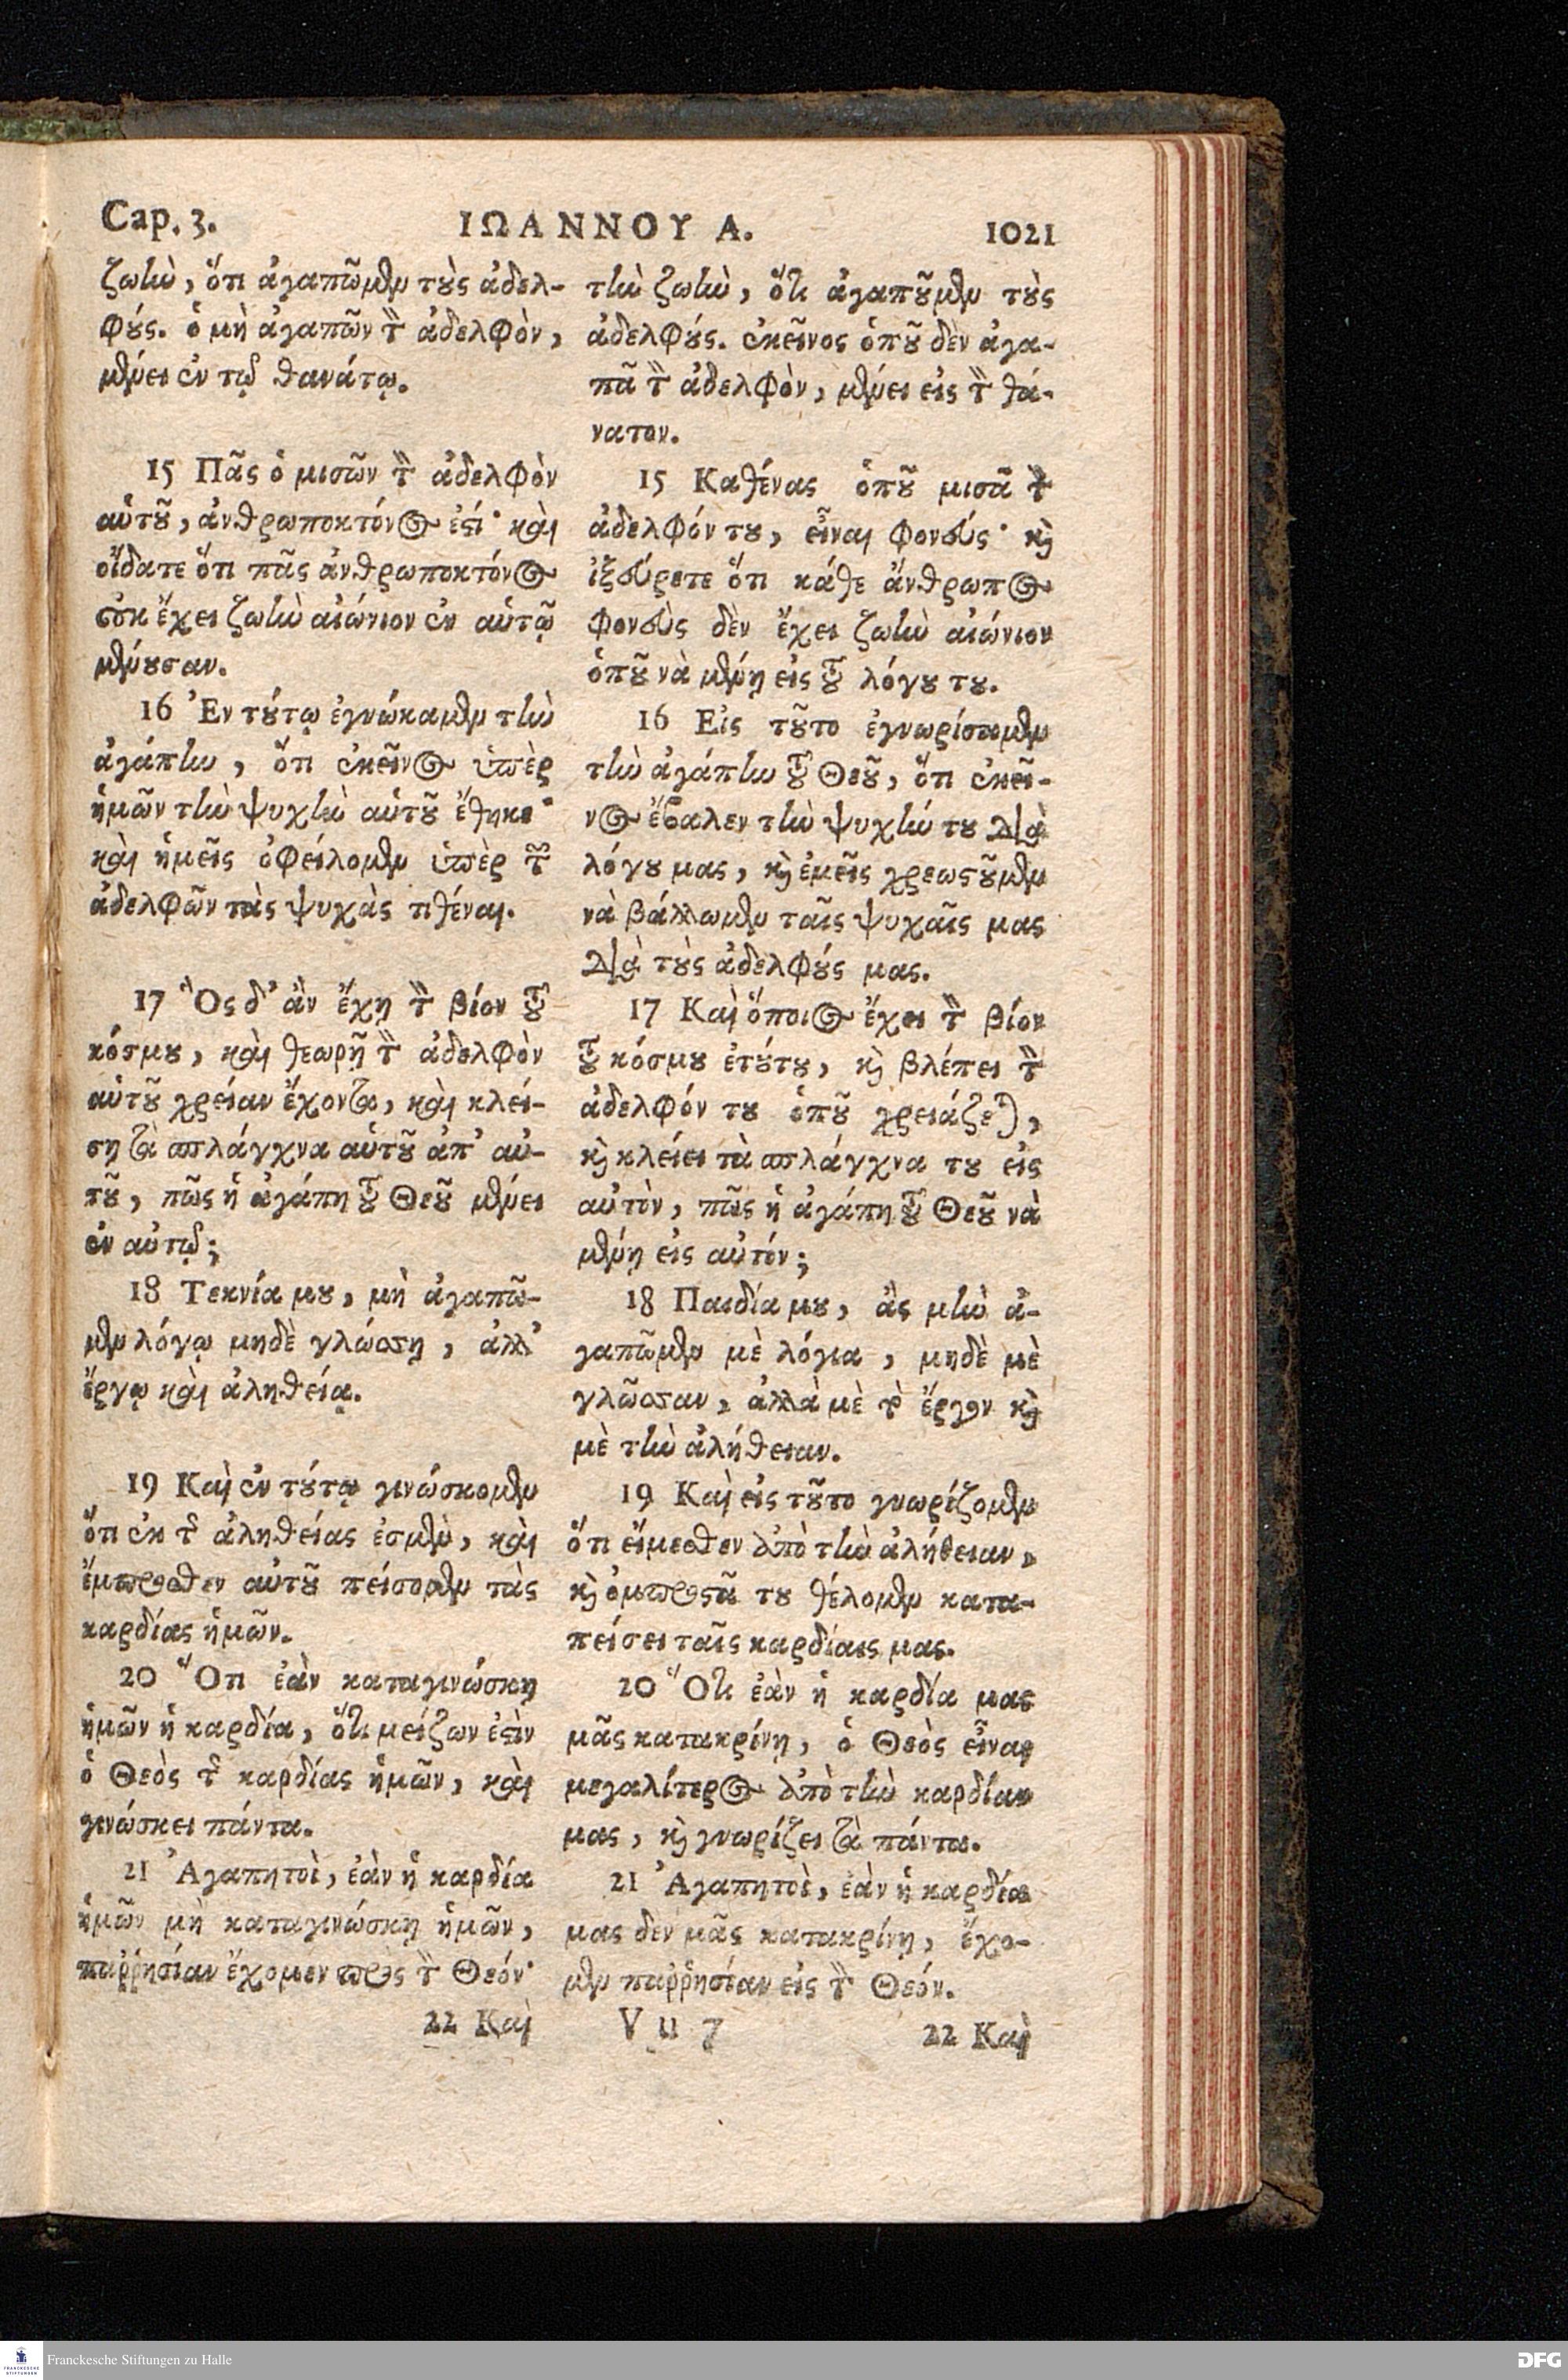 Cap. 3.
ΙΩΑΝΝΟΥ Α.
1021
ζωὴν, ὅτι ἀγαπῶμεν τοὺς ἀδελ-
φούς. ὁ μὴ ἀγαπῶν τὸν ἀδελφὸν,
μένει ἐν τῷ θανάτῳ.
15 Πᾶς ὁ μισῶν τὸν ἀδελφὸν
αὑτοῦ, ἀνθρωποκτόνος ἐστί· καὶ
οἴδατε ὅτι πᾶς ἀνθρωποκτόνος
οὐκ ἔχει ζωὴν αἰώνιον ἐν αὑτῷ
μένουσαν.
16 Ἐν τούτῳ ἐγνώκαμεν τὴν
ἀγάπην, ὅτι ἐκεῖνος ὑπὲρ
ἡμῶν τὴν ψυχὴν αὑτοῦ ἔθηκε·
καὶ ἡμεῖς ὀφείλομεν ὑπὲρ τῶν
ἀδελφῶν τὰς ψυχὰς τιθέναι.
17 Ὃς δ' ἂν ἔχῃ τὸν βίον τοῦ
κόσμου, καὶ θεωρῇ τὸν ἀδελφὸν
αὑτοῦ χρείαν ἔχοντα, καὶ κλεί-
σῃ τὰ σπλάγχνα αὑτοῦ ἀπ' αὐ-
τοῦ, πῶς ἡ ἀγάπη τοῦ Θεοῦ μένει
ἐν αὐτῷ;
18 Τεκνία μου, μὴ ἀγαπῶ-
μεν λόγῳ μηδὲ γλώσσῃ, ἀλλ'
ἔργῳ καὶ ἀληθείᾳ.
19 Καὶ ἐν τούτῳ γινώσκομεν
ὅτι ἐκ τῆς ἀληθείας ἐσμὲν, καὶ
ἔμπροσθεν αὐτοῦ πείσομεν τὰς
καρδίας ἡμῶν.
20 Ὅτι ἐὰν καταγινώσκῃ
ἡμῶν ἡ καρδία, ὅτι μείζων ἐστὶν
ὁ Θεὸς τῆς καρδίας ἡμῶν, καὶ
γινώσκει πάντα.
21 Ἀγαπητοὶ, ἐὰν ἡ καρδία
ἡμῶν μὴ καταγινώσκῃ ἡμῶν,
παῤῥησίαν ἔχομεν πρὸς τὸν Θεόν·
22 Καὶ
τὴν ζωὴν, ὅτι ἀγαποῦμεν τοὺς
ἀδελφούς. ἐκεῖνος ὁποῦ δὲν ἀγα-
πᾶ τὸν ἀδελφὸν, μένει εἰς τὸν θά-
νατον.
15 Καθένας ὁποῦ μισᾶ τὸν
ἀδελφόν του, εἶναι φονεύς· καὶ
ἰξεύρετε ὅτι κάθε ἄνθρωπος
φονεὺς δὲν ἔχει ζωὴν αἰώνιον
ὁποῦ νὰ μένῃ εἰς τοῦ λόγου του.
16 Εἰς τοῦτο ἐγνωρίσαμεν
τὴν ἀγάπην τοῦ Θεοῦ, ὅτι ἐκεῖ-
νος ἔβαλεν τὴν ψυχήν του διὰ
λόγου μας, καὶ ἐμεῖς χρεωστοῦμεν
νὰ βάλλωμεν ταῖς ψυχαῖς μας
διὰ τοὺς ἀδελφούς μας.
17 Καὶ ὅποιος ἔχει τὸν βίον
τοῦ κόσμου ἐτούτου, καὶ βλέπει τὸν
ἀδελφόν του ὁποῦ χρειάζεται,
καὶ κλείει τὰ σπλάγχνα του εἰς
αὐτὸν, πῶς ἡ ἀγάπη τοῦ Θεοῦ νὰ
μένῃ εἰς αὐτόν;
18 Παιδία μου, ἂς μὴν ἀ-
γαπῶμεν μὲ λόγια, μηδὲ μὲ
γλῶσσαν, ἀλλὰ μὲ τὸ ἔργον καὶ
μὲ τὴν ἀλήθειαν.
19 Καὶ εἰς τοῦτο γνωρίζομεν
ὅτι εἴμεσθεν ἀπὸ τὴν ἀλήθειαν,
καὶ ὀμπροστᾶ του θέλομεν κατα-
πείσει ταῖς καρδίαις μας.
20 Ὅτι ἐὰν ἡ καρδία μας
μᾶς κατακρίνῃ, ὁ Θεὸς εἶναι
μεγαλίτερος ἀπὸ τὴν καρδίαν
μας, καὶ γνωρίζει τὰ πάντα.
21 Ἀγαπητοὶ, ἐὰν ἡ καρδία
μας δεν μᾶς κατακρίνῃ, ἔχο-
μεν παῤῥησίαν εἰς τὸν Θεόν.
V u 7
22 Καὶ
FRANCKESCHE
STIFTUNGEN
Franckesche Stiftungen zu Halle
DFG